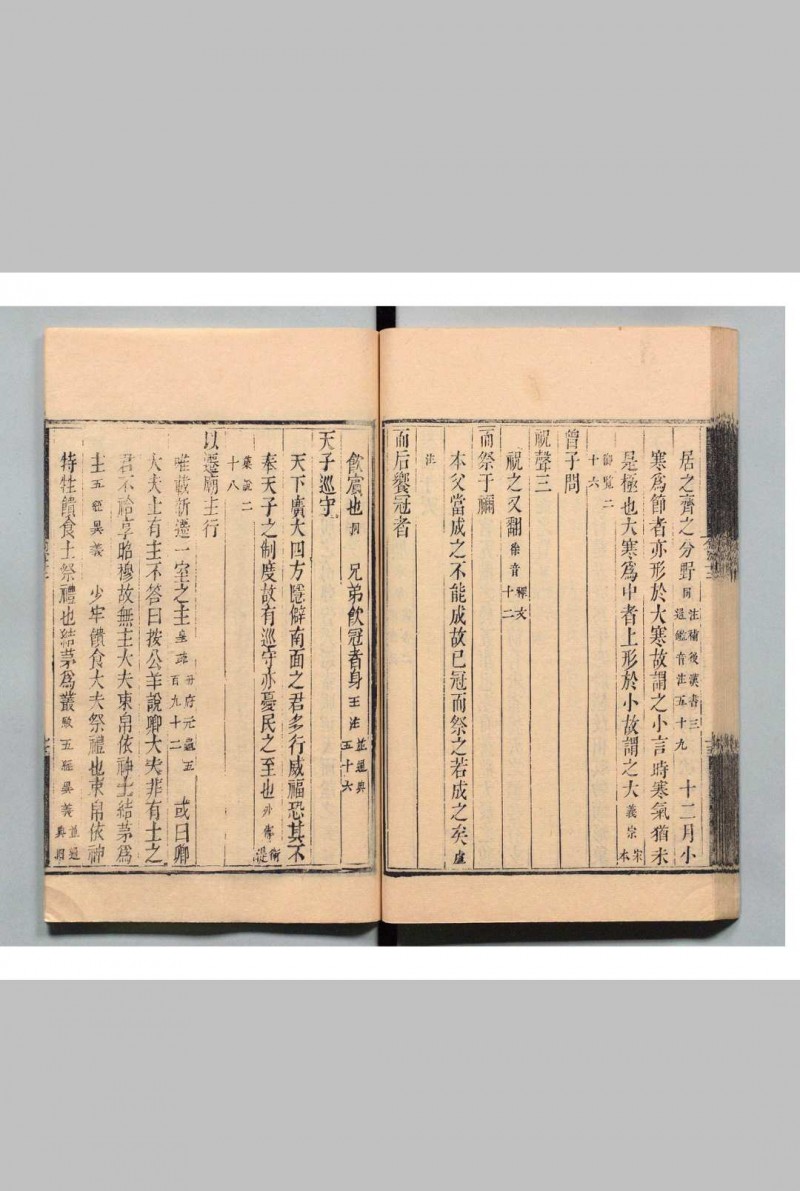 居之齊之分野同注補後漢書三通鑑音注五十九 十二月小
寒爲節者亦形於大寒故謂之小言時寒氣猶未
是極也大寒爲中者上形於小故謂之大義宗宋本
御覽二十六
曾子問
祝聲三
祝之又翻徐音釋文十二
而祭于禰
本父當成之不能成故已冠而祭之若成之矣盧
注
而后饗冠者
飲賓也同 兄弟飲冠者身王注並通典五十六
天子巡守
天下廣大四方隱僻南面之君多行威福恐其不
奉天子之制度故有巡守亦憂民之至也外傳衛湜
集說二十八
以遷廟主行
唯載新遷一室之主皇疏冊府元龜五百九十二 或曰卿
大夫士有主不答曰按公羊說卿大夫非有土之
君不祫享昭穆故無主大夫束帛依神士結茅爲
主五經異義 少牢饋食大夫祭禮也束帛依神
特牲饋食士祭禮也結茅爲菆駁五經異義並通典四